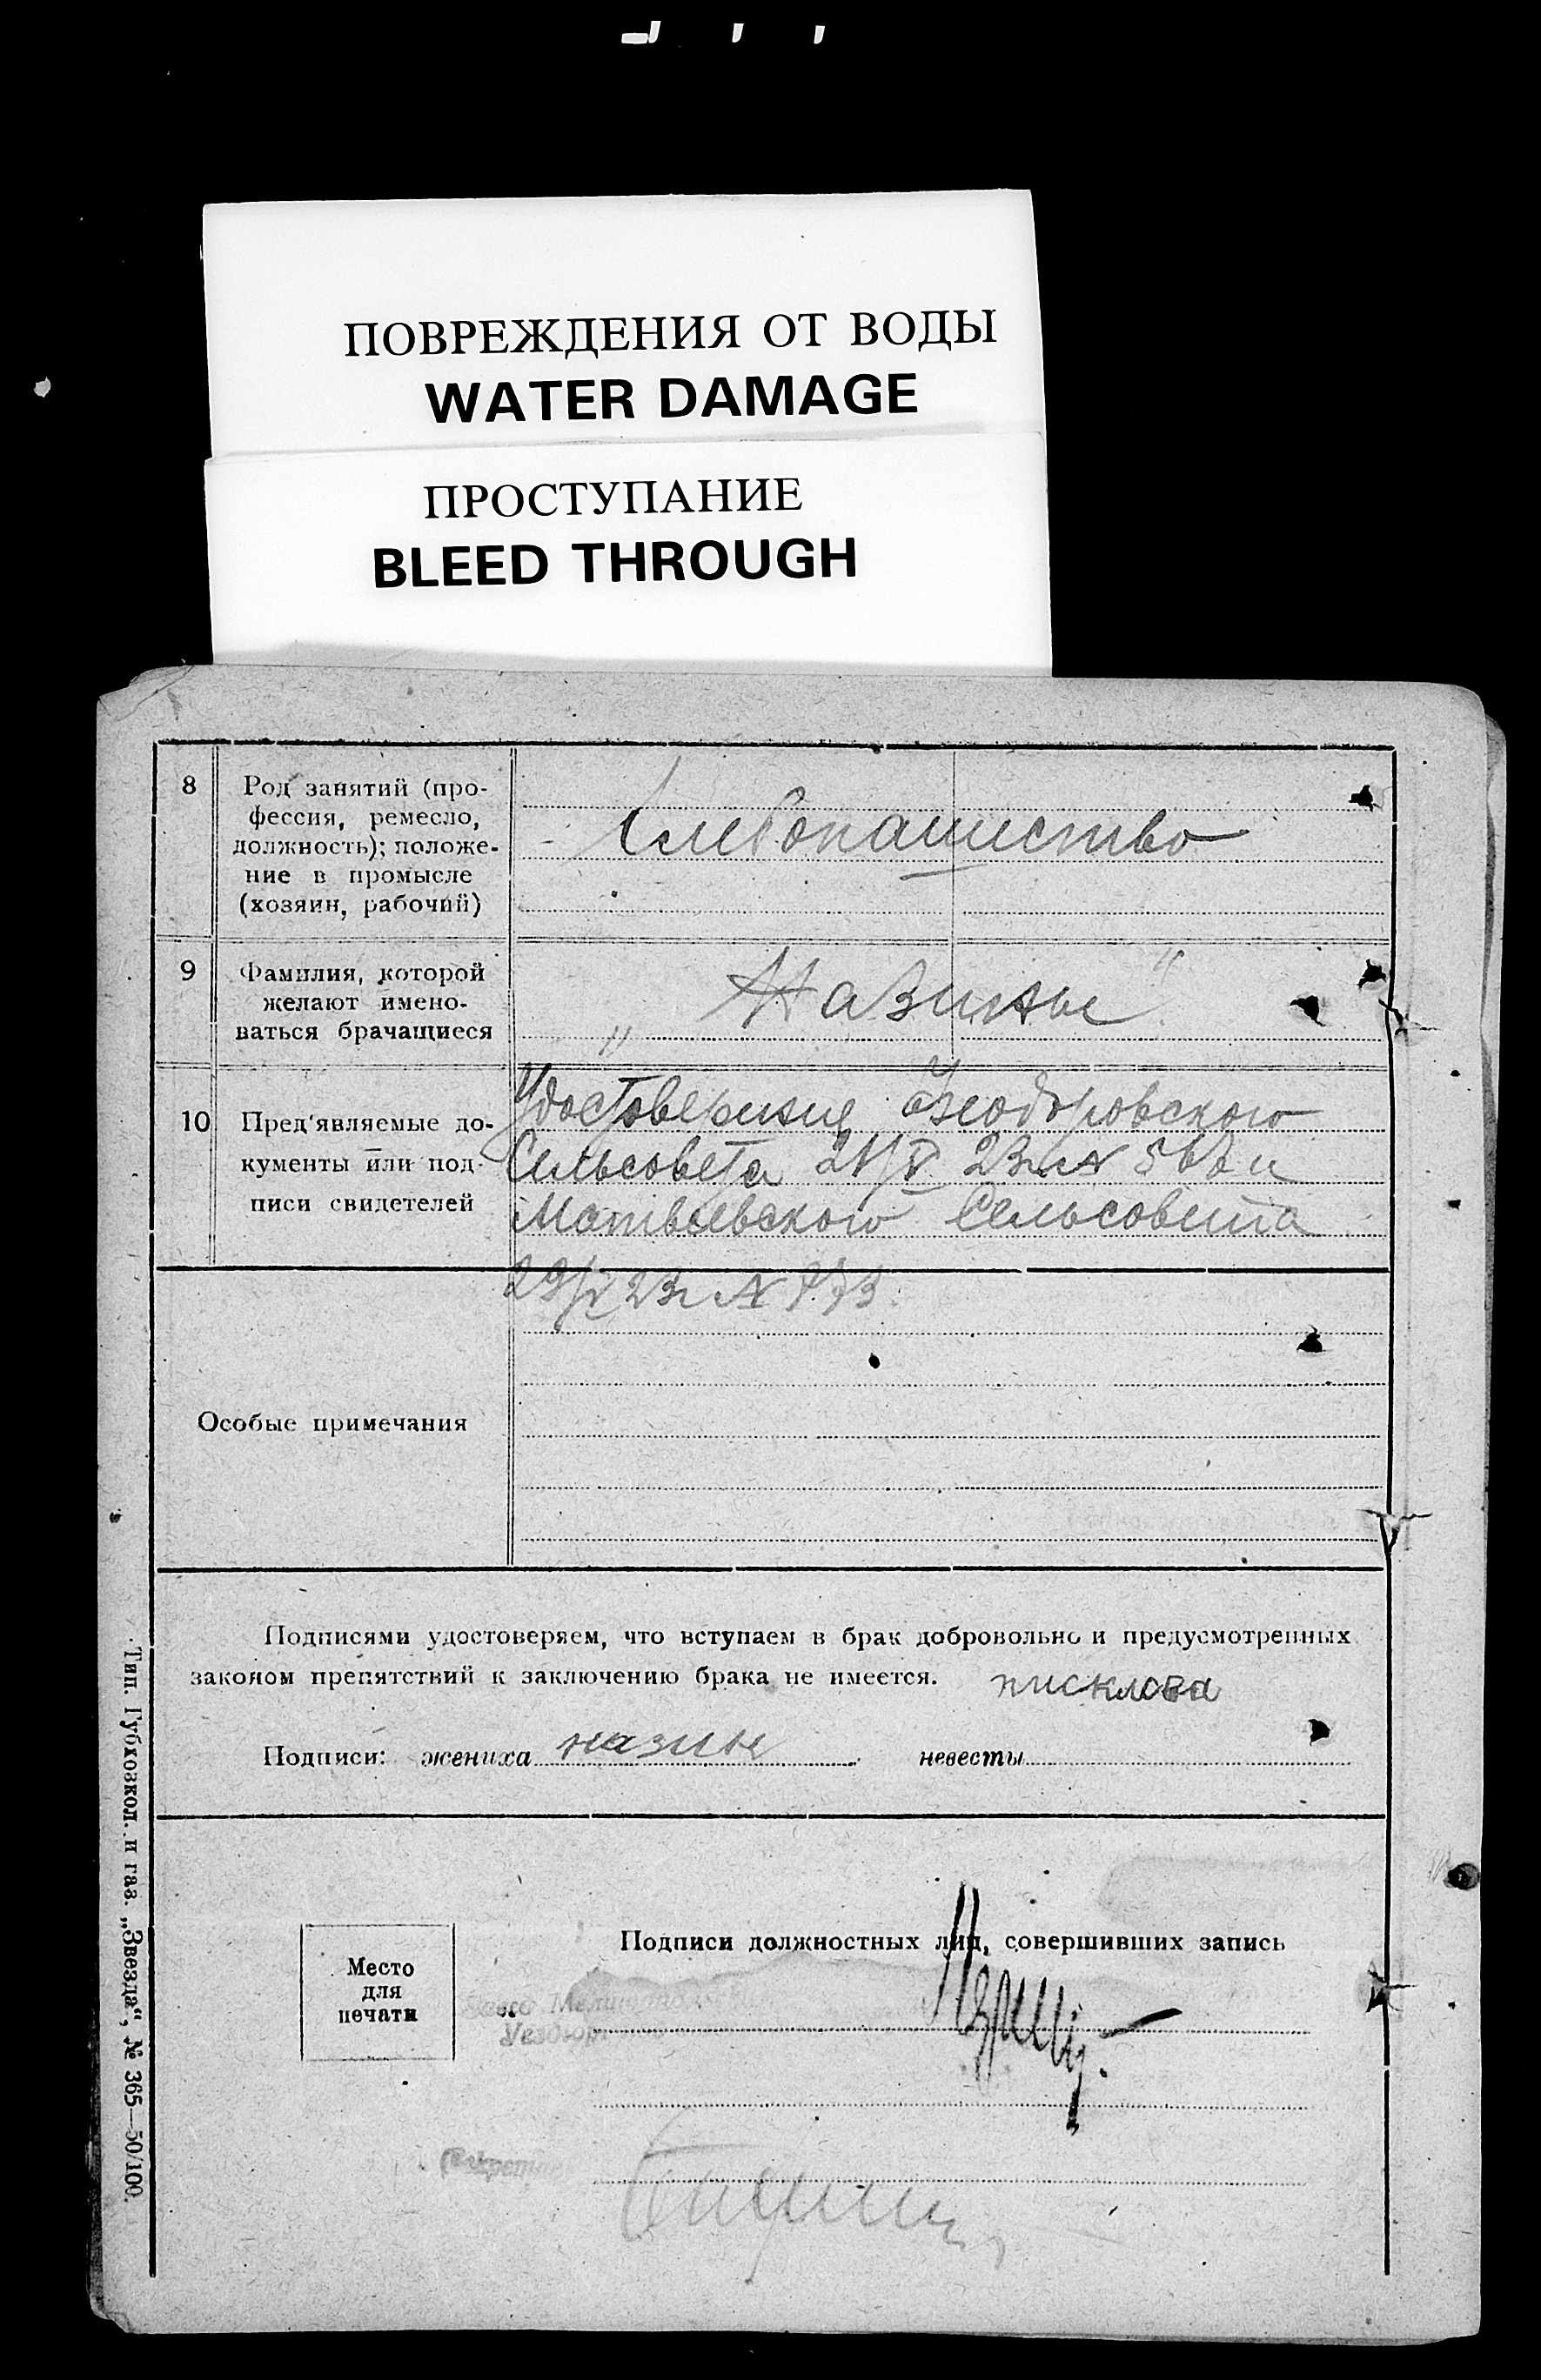 ПОВРЕЖДЕНИЯ ОТ ВОДЫ
WATER DAMAGE
ПРОСТУПАНИЕ
BLEED THROUGH
8 Род занятий (про-
фессия, ремесло,
должность); положе-
ние в промысле
(хозяин, рабочий)
Хлебопашество
9 Фамилия, которой
желают имено-
ваться брачащиеся
" Назины "
10 Пред'являемые до-
кументы или под-
писи свидетелей
Удостоверение Феодоровского
Сельсовета 23г №
Матвеевского Сельсовета
29/V 23г №
Особые примечания
Подписями удостоверяем, что вступаем в брак добровольно и предусмотренных
законом препятствий к заключению брака не имеется.
писклова
Подписи: жениха назин невесты
Место
для
печати
Подписи должностных лиц, совершивших запись
Тип. Губхозкол. и газ. „Звезда“, № 365—50/100.